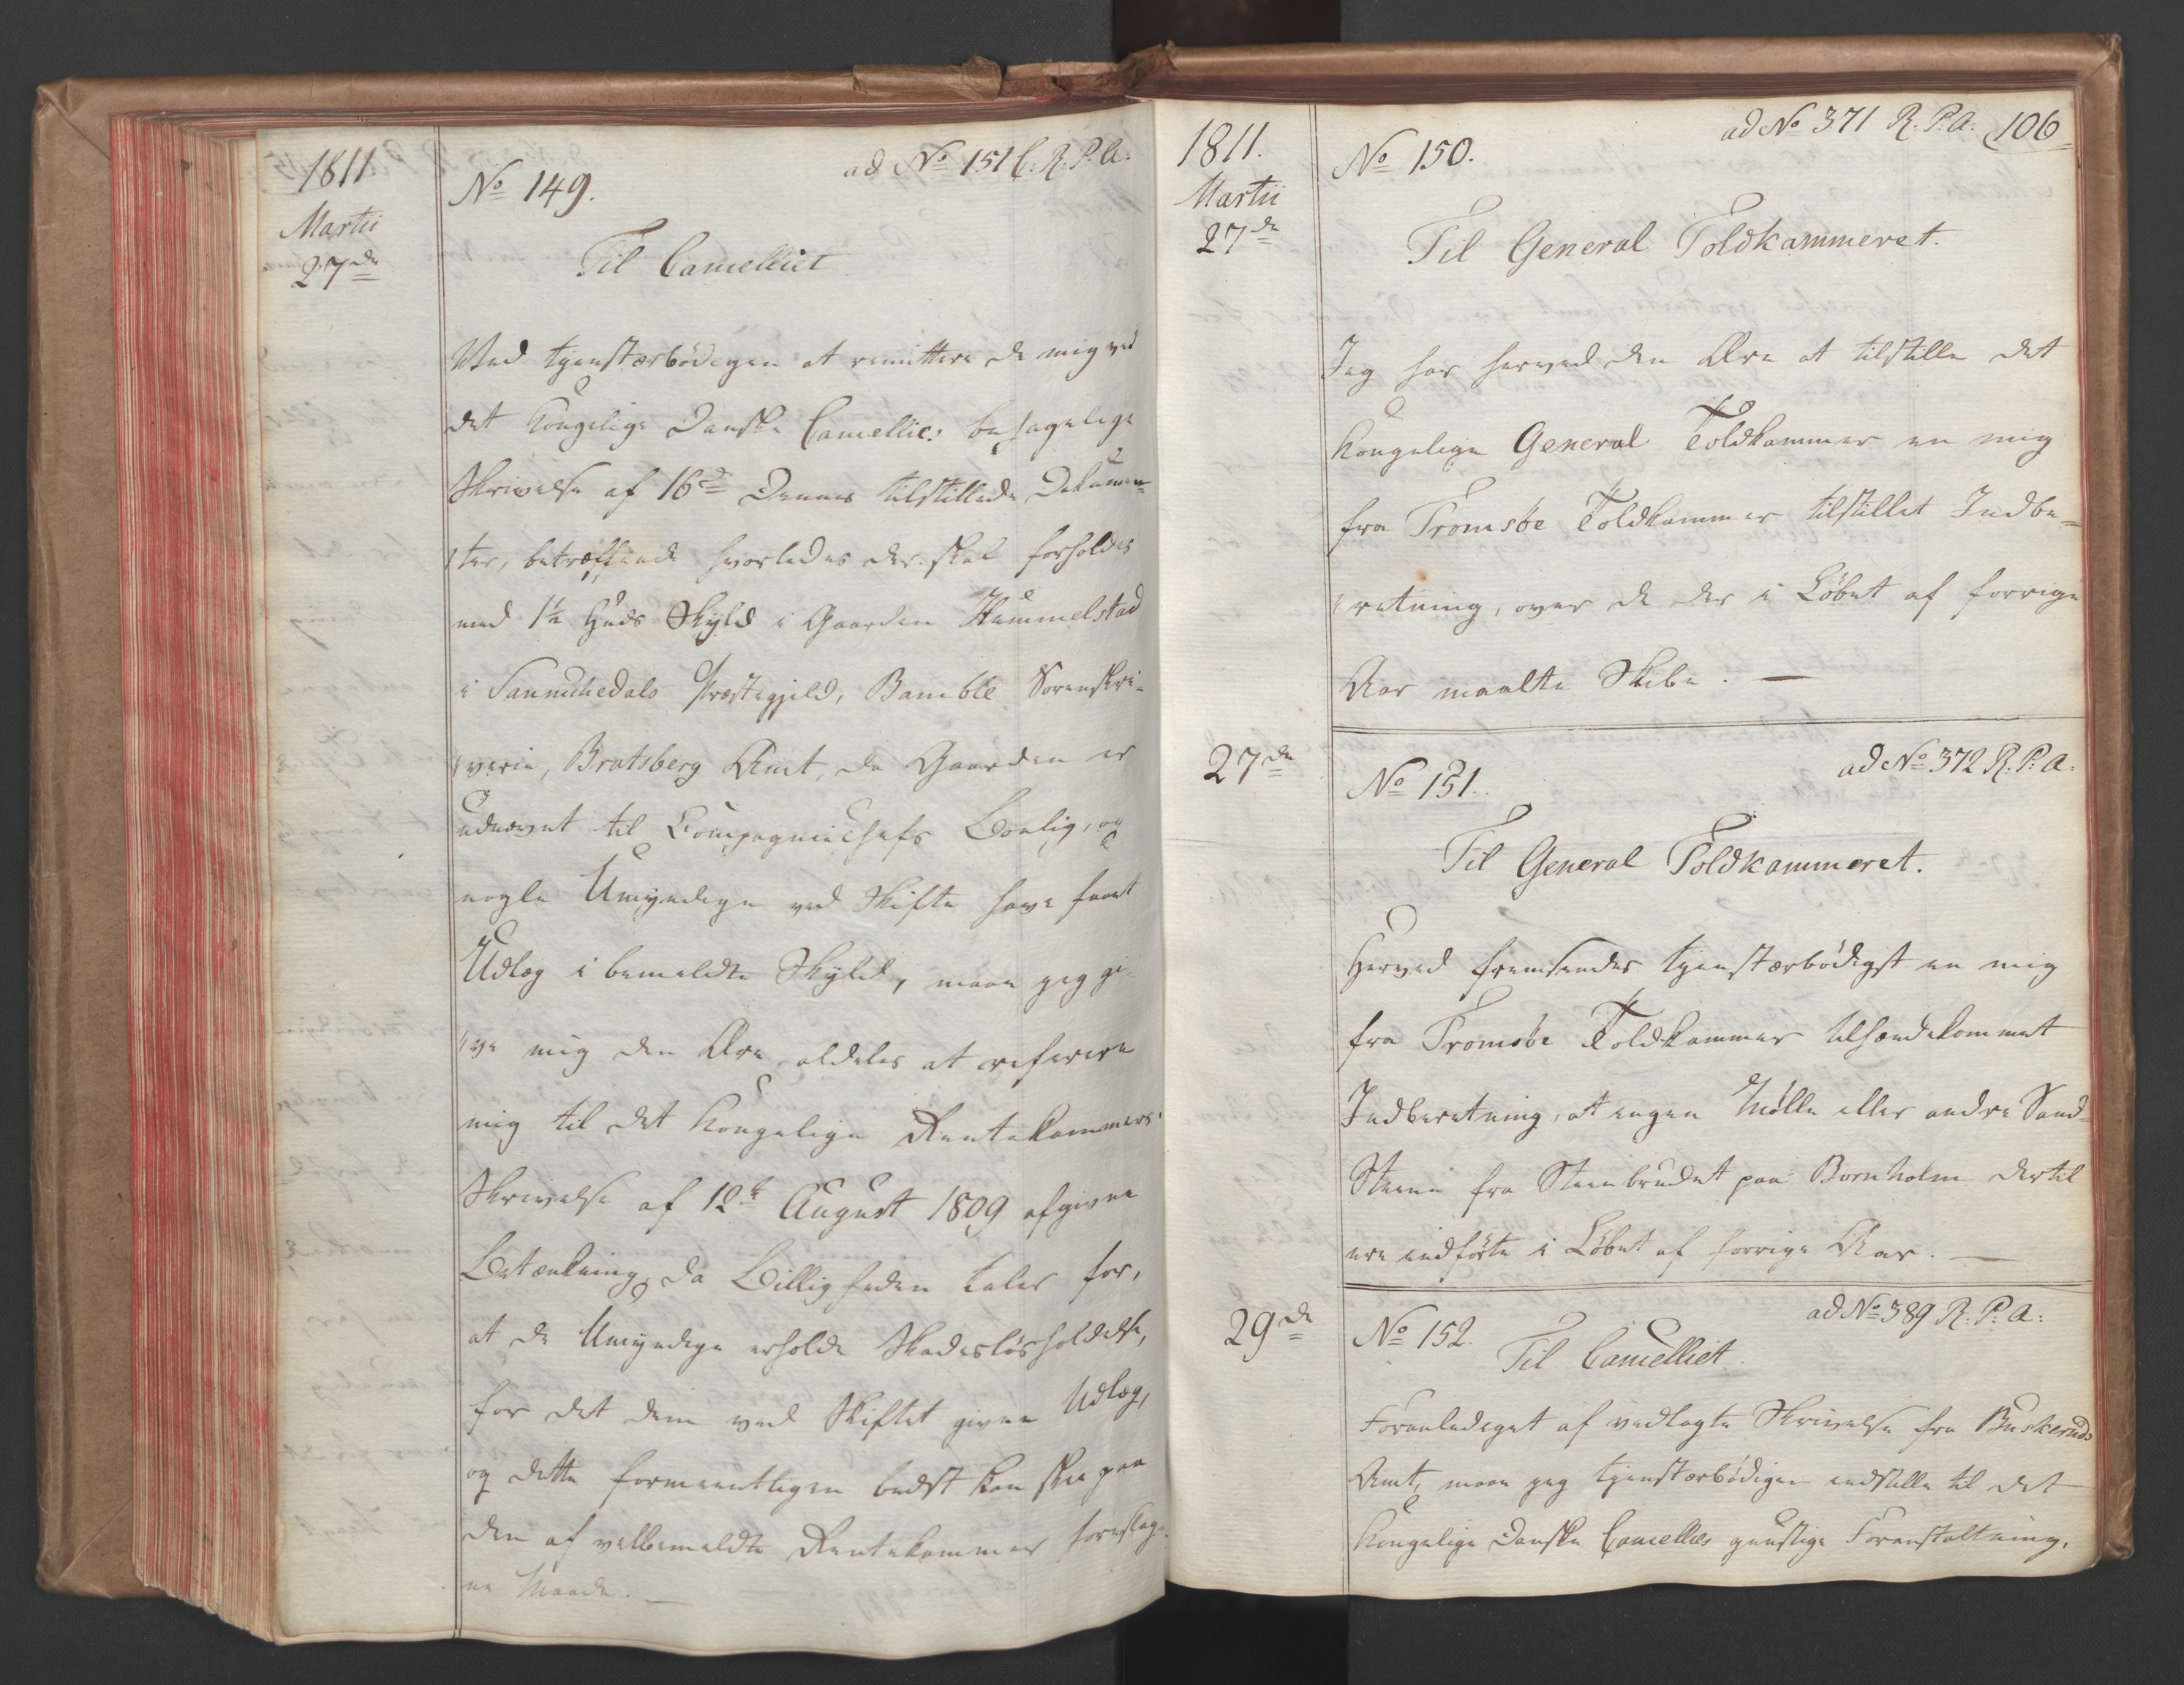 1811
Martii
27de
No 149.
ad No 151 C. R. P. A.
Til Cancelliet
Med tjenstærbødigen at remittere de mig ved
det Kongelige Danske Cancellies behagelige
Skrivelse af 16de Dennes tilstillede Dokumen-
ter, betræffende hvorledes der skal forholdes
med 1½ Huds Skyld i Gaarden Hummelstad
i Sannikedals Præstegjeld, Bamble Sorenskri-
verie, Bratsberg Amt, da Gaarden er
udnævnt til Compagniechefs Boelig, og
nogle Umyndige ved Skifte have faaet
Udlæg i bemeldte Skyld, maae jeg gi-
ve mig den Ære aldeles at referere
mig til det Kongelige Rentekammers
Skrivelse af 12te August 1809 afgivne
Betænkning, da Billigheden taler for,
at de Umyndige erholde Skadesløsholdelse,
for det dem ved Skiftet givne Udlæg,
og dette formeentligen bedst kan skee paa
den af velbemeldte Rentekammer foreslag-
ne Maade. —
1811.
Martii
27de
No 150.
ad No 371 R. P. A.
106
Til General Toldkammeret.
Jeg har herved den Ære at tilstille det
Kongelige General Toldkammer en mig
fra Tromsöe Toldkammer tilstillet Indbe-
retning, over de der i Löbet af forrige
Aar maalte Skibe. —
27de
No 151.
ad No 372 R. P. A.
Til General Toldkammeret.
Herved fremsendes tjenstærbødigst en mig
fra Tromsöe Toldkammer tilhændekommet
Indberetning, at ingen Mölle eller andre Sand-
Stene fra Steenbrudet paa Bornholm dertil
ere indförte i Löbet af forrige Aar. —
29de
No 152.
ad No 389 R. P. A.
Til Cancelliet
Foranlediget af vedlagte Skrivelse fra Buskeruds
Amt, maae jeg tjenstærbødigen indstille til det
Kongelige Danske Cancellies gunstige Foranstaltning,